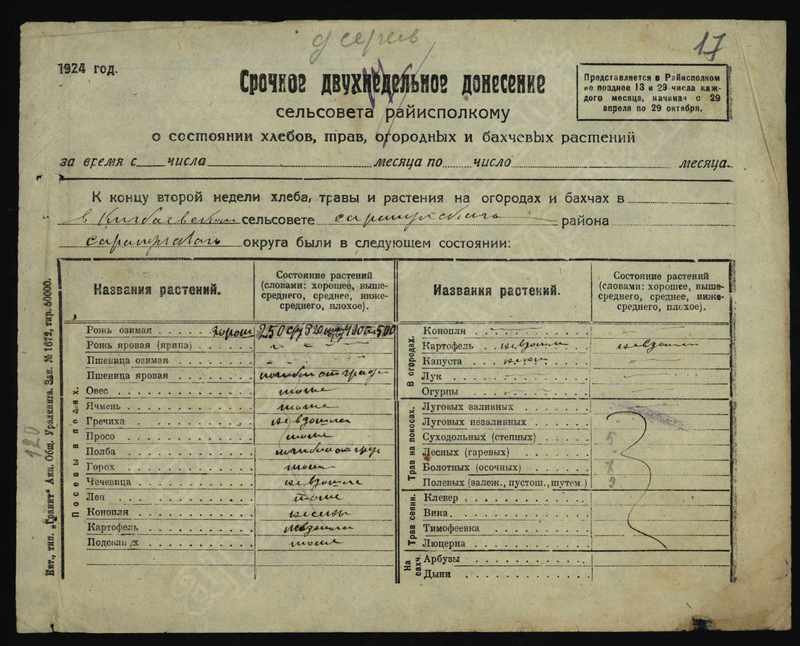 17
1924 год.
Срочное двухнедельное донесение
сельсовета райисполкому
о состоянии хлебов, трав, огородных и бахчевых растений
Представляется в Райисполком
не позднее 13 и 29 числа каж-
дого месяца, начиная с 29
апреля по 29 октября.
за время с числа месяца по число месяца.
К концу второй недели хлеба, травы и растения на огородах и бахчах в
в сельсовете района
округа были в следующем состоянии:
Названия растений.
Состояние растений
(словами: хорошее, выше-
среднего, среднее, ниже-
среднего, плохое).
Посевы в полях.
Рожь озимая хорош 250
Рожь яровая (ярица)
Пшеница озимая
Пшеница яровая погибли от града
Овес тоже
Ячмень тоже
Гречиха не взошла
Просо тоже
Полба
Горох тоже
Чечевица не взошла
Лен тоже
Конопля
Картофель не взошли
Подсолнух тоже
Названия растений.
Состояние растений
(словами: хорошее, выше-
среднего, среднее, ниже-
среднего, плохое).
В огородах.
Конопля
Картофель не взошли не взошли
Капуста
Лук
Огурцы
Трав на покосах.
Луговых заливных
Луговых незаливных
Суходольных (степных)
Лесных (гаревых)
Болотных (осочных)
Полевых (валеж., пустош., шутем.)
Трав сеянн.
Клевер
Вика
Тимофеевка
Люцерна
На бахч.
Арбузы
Дыни
120
Вят., тип. „Гранит“ Акц. Общ. Уралкнига. Зак. № 1672, тир. 50000.